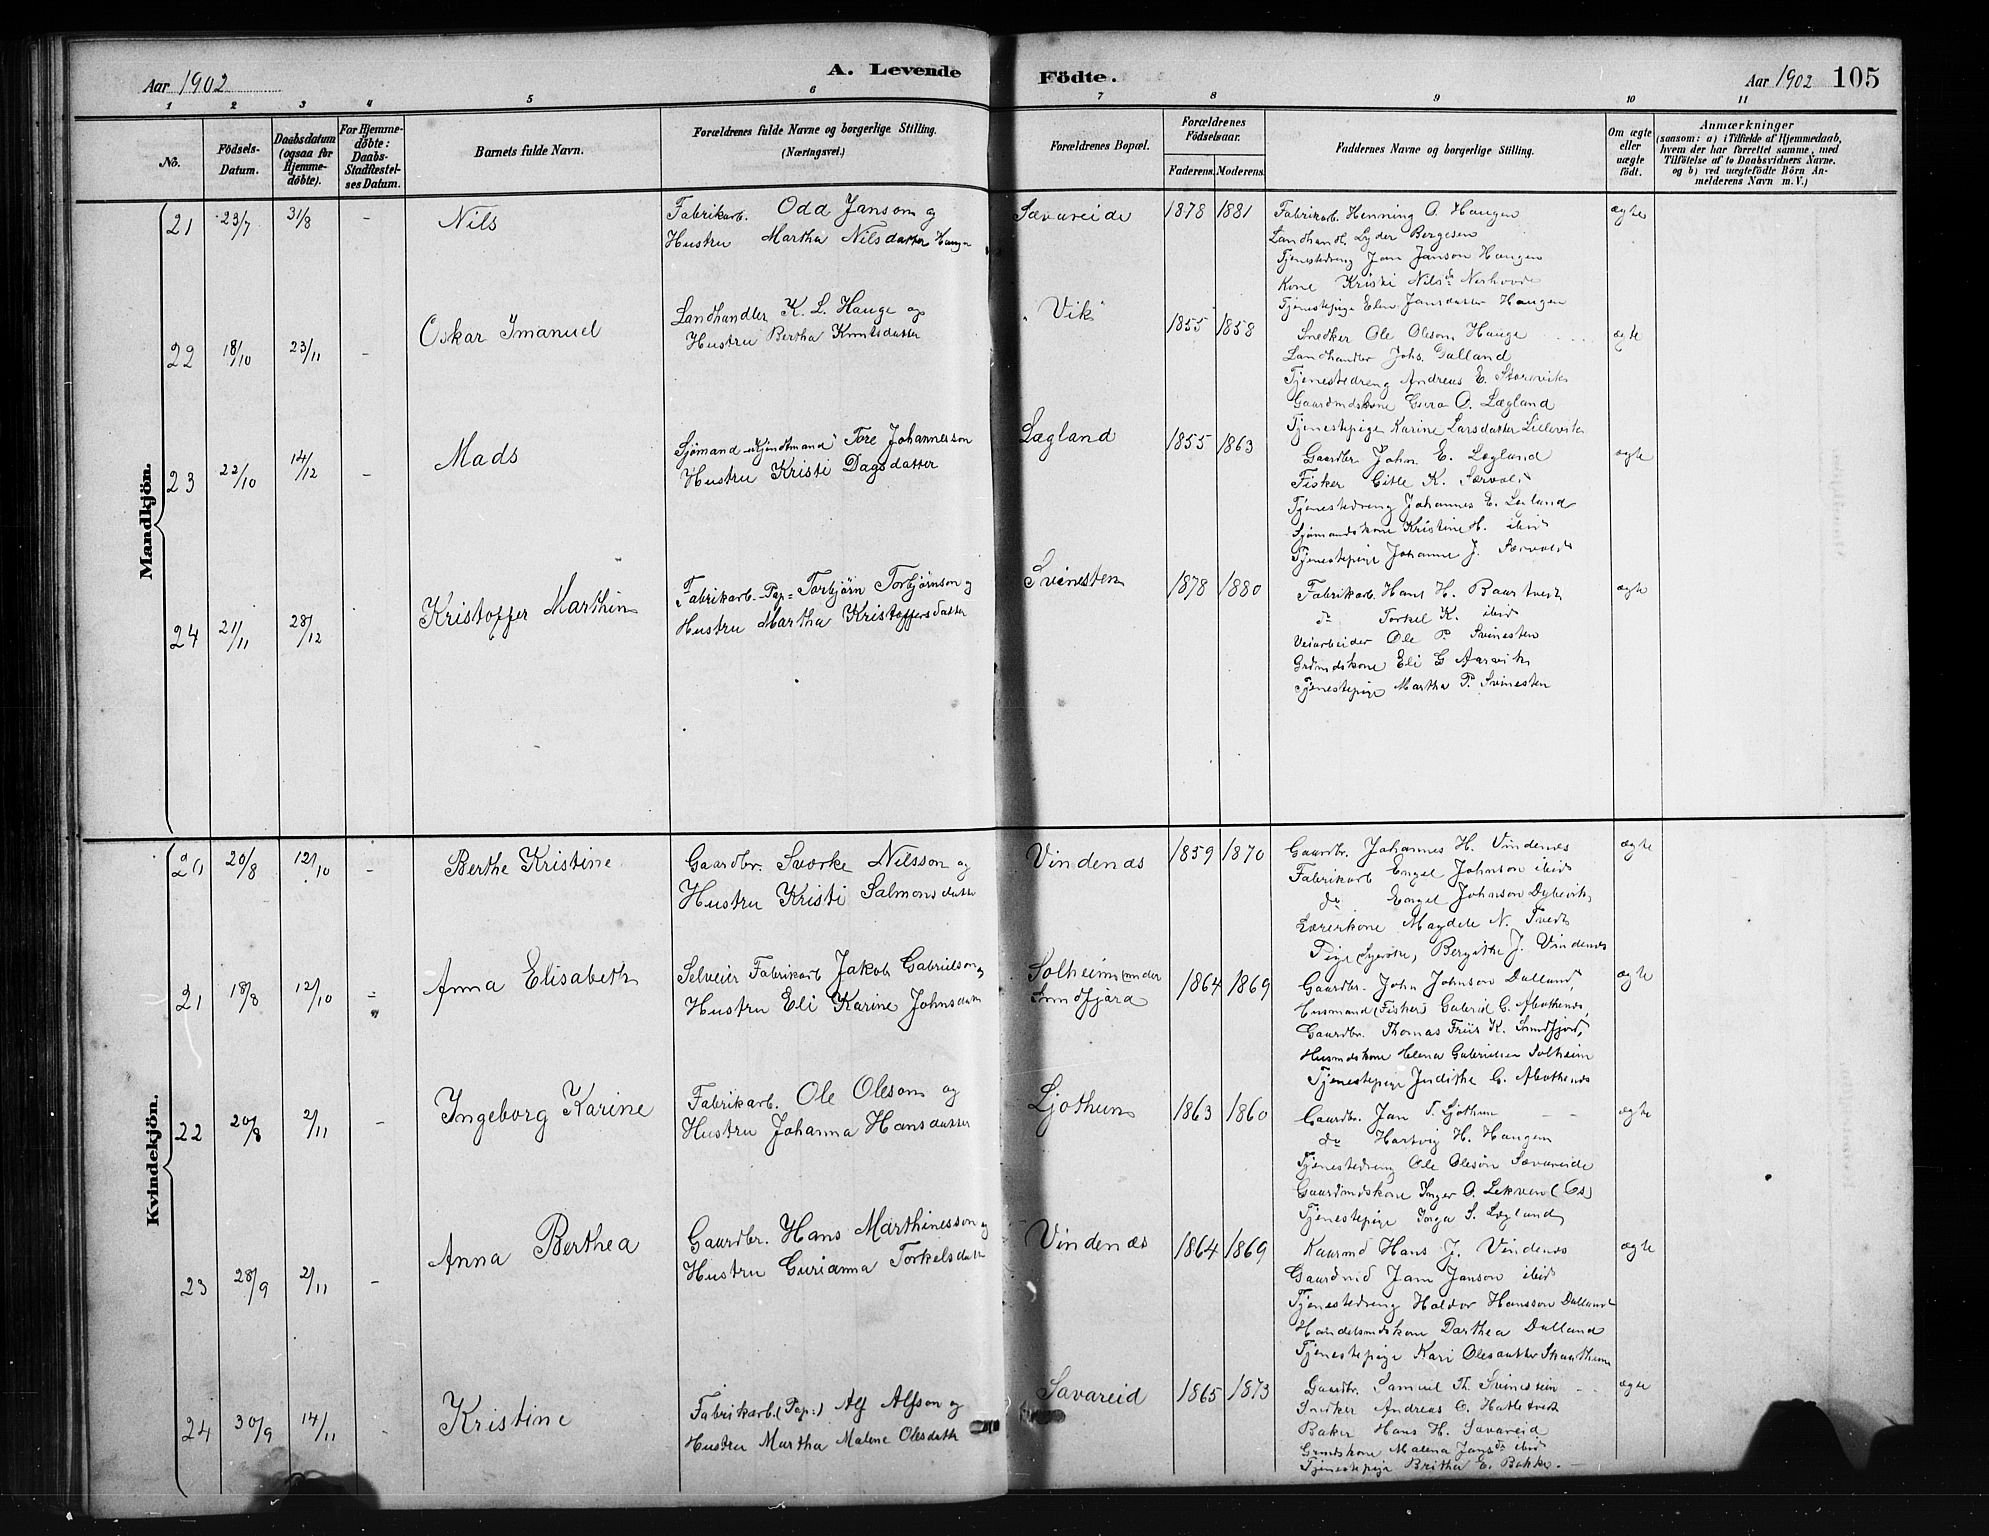 Aar 1902
A. Levende Födte.
Aar 1902 105
1 2 3 4 5 6 7 8 9 10 11
No.
Födsels-Datum.
Daabsdatum (ogsaa for Hjemme-döbte).
For Hjemme-döbte: Daabs-Stadfæstelses Datum.
Barnets fulde Navn.
Forældrenes fulde Navne og borgerlige Stilling. (Næringsvei.)
Forældrenes Bopæl.
Forældrenes Födselsaar.
Faderens. Moderens.
Faddernes Navne og borgerlige Stilling.
Om ægte eller uægte födt.
Anmærkninger
(saasom: a) i Tilfælde af Hjemmedaab,
hvem der har forrettet samme, med
Tilföielse af to Daabsvidners Navne,
og b) ved uægtefödte Börn An-
melderens Navn m. V.)
Mandkjön.
21 23/7 31/8 - Nils
Fabrikarb. Odd Janson og
Hustru Martha Nilsdatter Hauge
Sævareide 1878 1881
Fabrikarb. Henning O. Haugen
Landhandl. Lyder Bergesen
Tjenestedreng Jan Janson Haugen
Kone Kristi Nilsdr
Tjenestepige Elen Jansdatter Haugen
ægte
22 18/10 23/11 - Oskar Imanuel
Landhandler K. L. Hauge og
Hustru Bertha Knutsdatter
Vik 1855 1858
Snedker Ole Oleson Hauge
Landhandler Johs. Dalland
Tjenestedreng Andreas E. Storevik
Gaardmdskone Guro O. Lægland
Tjenestepige Karine Larsdatter Lillevik
ægte
23 22/10 14/12 - Mads
Sjømand Tore Johannesson
Hustru Kristi Dagsdatter
Lægland 1855 1863
Gaardbr. John E. Lægland
Fisker Gitle K. Særvold
Tjenestedreng Johannes E. Lægland
Sjømandskone Kristine H. ibid
Tjenestepige Johanne J. Særvold
ægte
24 21/11 28/12 Kristoffer Marthin
Fabrikarb. Pap: Torbjørn Torbjørnson og
Hustru Martha Kristoffersdatter
Svinesten 1878 1880
Fabrikarb. Hans H. Baartvedt
do Torkel K. ibid
Veiarbeider Ole P. Svinesten
Grdmdskone Eli G Aarvik
Tjenestepige Martha P. Svinesten
ægte
Kvindekjön.
20 20/8 12/10 - Berthe Kristine
Gaardbr. Sværke Nilsson og
Hustru Kristi Salmonsdatter
Vindenæs 1859 1870
Gaardbr. Johannes H. Vindenæs
Fabrikarb Engel Johnson ibid
do Engel Johnson Dybevik
Lærerkone Magdele N. Tvedt
Pige (Syerske) Bergithe J. Vindenæs
ægte
21 18/8 12/10 = Anna Elisabeth
Selveier Fabrikarb Jakob Gabrielson og
Hustru Eli Karine Johnsdatter
Solheim (under
Smdfjara 1864 1869
Gaardbr. John Johnson Dalland,
Husmand (Fisker) Gabriel G. Abothenæs,
Gaardbr. Thomas Friis K. Smdfjord,
Husmdskone Helena Gabrielsen Solheim
Tjenestepige Judithe G. Abothenæs
ægte
22 20/8 2/11 - Ingeborg Karine
Fabrikarb. Ole Oleson og
Hustru Johanna Hansdatter
Ljothun 1863 1860
Gaardbr. Jan T. Ljothun
do Hartvig H. Haugen
Tjenestedreng Ole Oleson Sævareide
Gaardmdskone Inger O. Lekven (Os)
Tjenestepige Inga S. Lægland
ægte
23 28/9 2/11 - Anna Berthea
Gaardbr. Hans Marthinesson og
Hustru Gurianna Torkelsdatter
Vindenæs 1864 1869
Kaarmd Hans J. Vindenæs
Gaardmd Jan Janson ibid
Tjenestedreng Haldor Hansson Dalland
Handelsmdskone Dorthea Dalland
Tjenestepige Kari Olesdatter Skaatheim
ægte
24 30/9 14/11 - Kristine
Fabrikarb. (Pap:) Alf Alfson og
Hustru Martha Malene Olesdatter
Sævareid 1865 1873
Gaardbr. Samuel Th. Svinesten
Snedker Andreas O. Hatletvedt
Baker Hans H. Sævareid
Grmdskone Malena Jansdr ibid
Tjenestepige Britha E. Bakke.
ægte